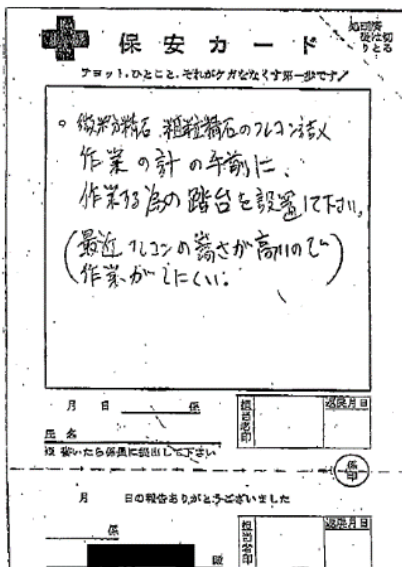 保安カード
チョット、ひとこと、それがケガをなくす第一歩です!
。微粉精石、粗粒精石のフレコン詰メ
作業の計の手前に、
作業する為の踏台を設置して下さい。
(最近フレコンの嵩さが高いので
作業がしにくい。)
月 日 係
氏名
担当者印
返戻月日
書いたら係長に提出して下さい
係印
月 日の報告ありがとうございました
係
殿
担当者印
返戻月日